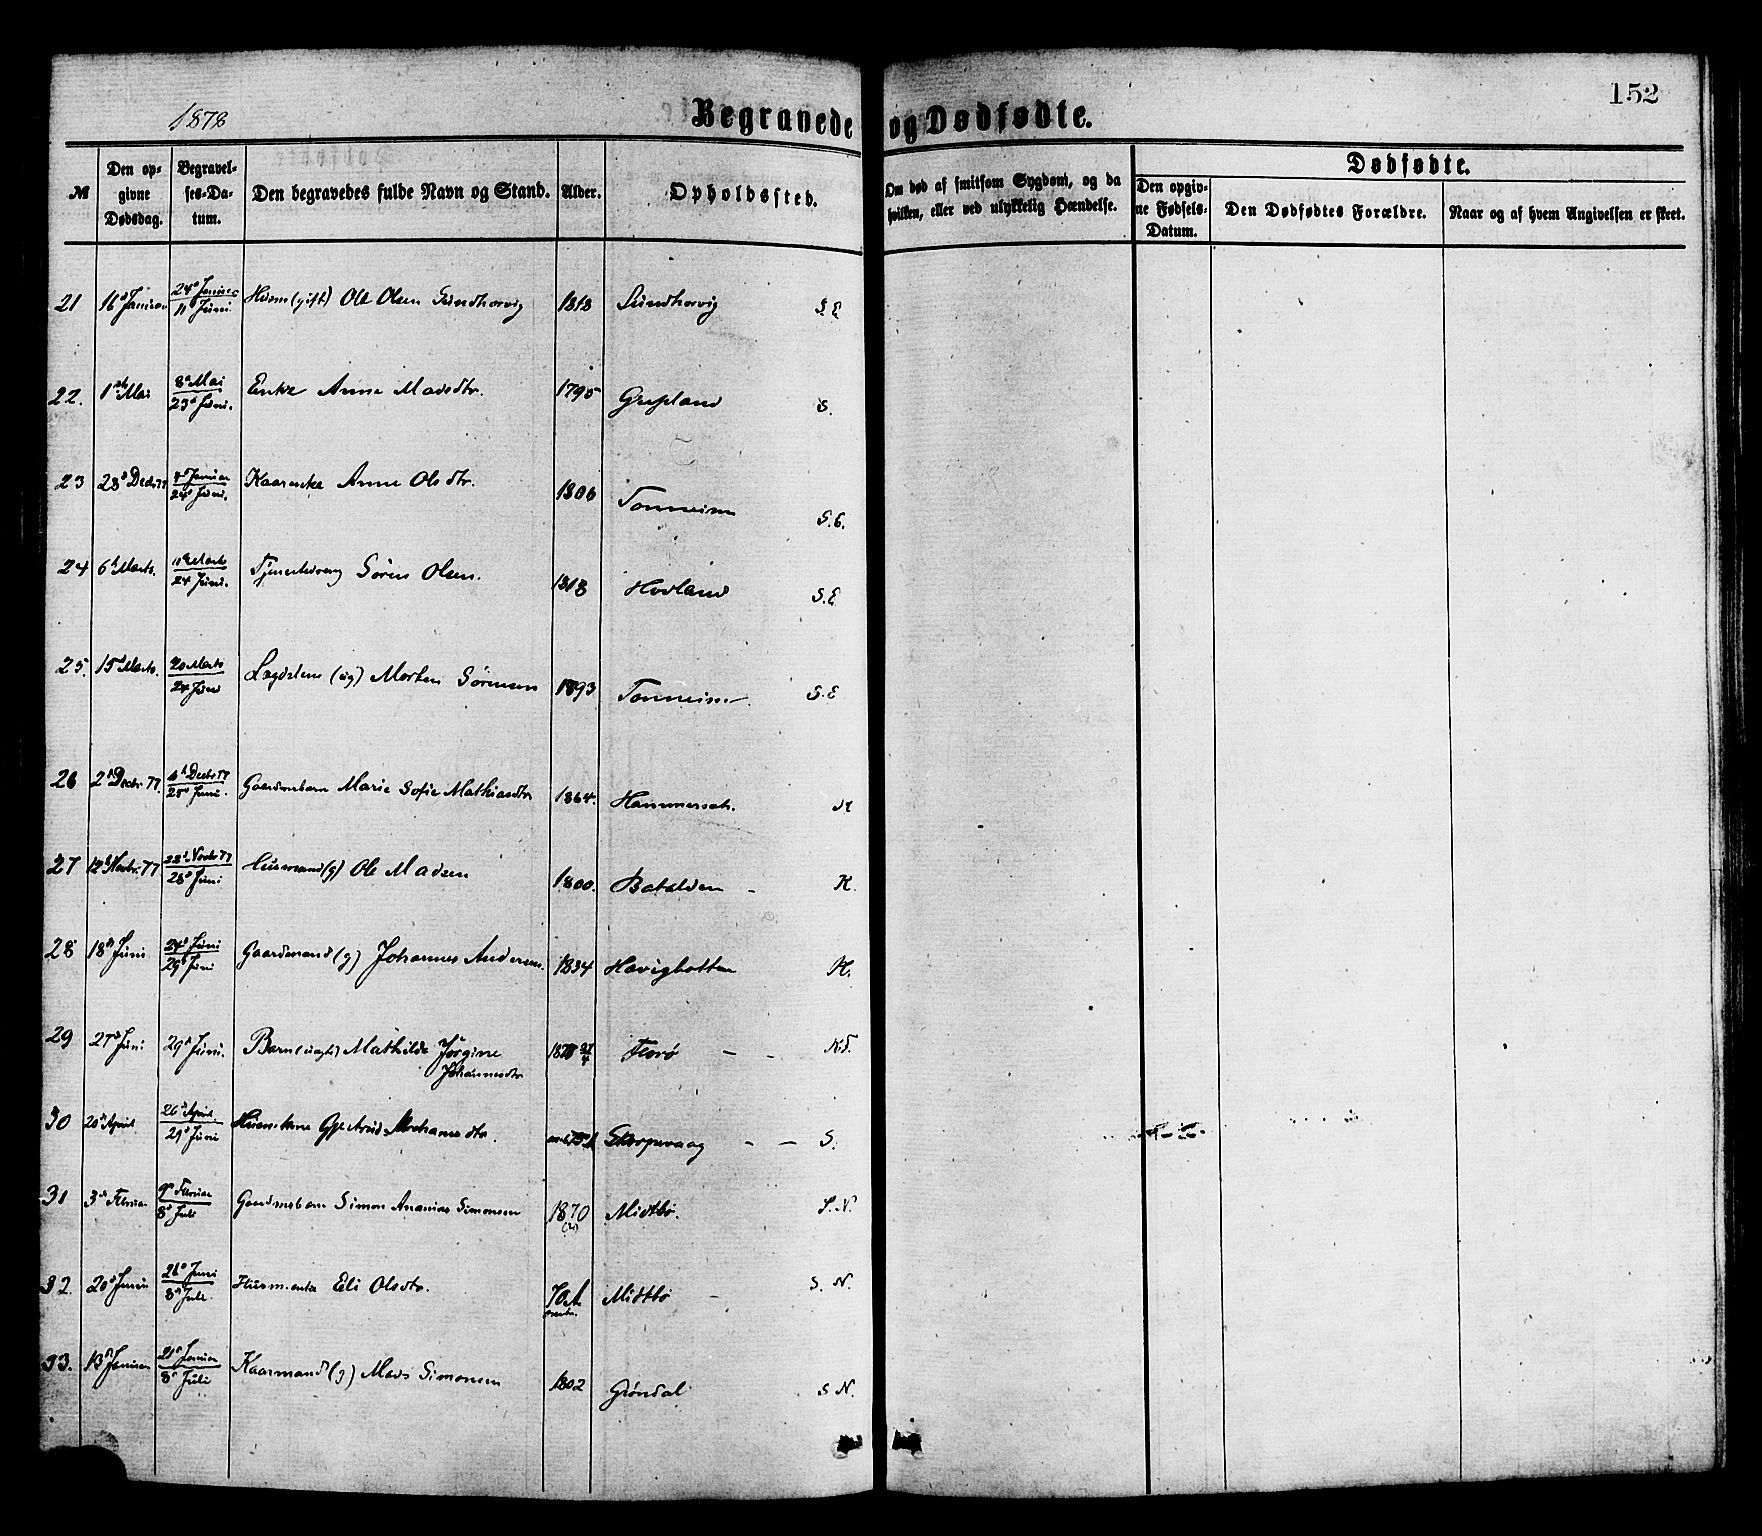 1878
Begravede og Dødfødte.
152
№
Den op-
givne
Dødsdag.
Begravel-
ses-Da-
tum.
Den begravedes fulde Navn og Stand.
Alder.
Opholdssted.
Om død af smitsom Sygdom, og da
hvilken, eller ved ulykkelig Hændelse.
Dødfødte.
Den opgiv-
ne Fødsels-
Datum.
Den Dødfødtes Forældre.
Naar og af hvem Angivelsen er skeet.
21 16d Januar 24d Januar / 11 Juni (gift) Ole Olsen Sundhorvig 1818 Sundhorvig S E
22. 1ste Mai 8d Mai / 23d Juni. Enke Anne Madsdtr. 1795 Grepland S.
23 28d Decbr 77 4d Januar / 24d Juni. Kaarenke Anne Olsdtr. 1806 Tonneim S.E.
24 6d Marts. 11d Marts / 24 Juni. Tjenestedreng Søren Olsen. 1818 Hovland S.E
25. 15d Marts. 20 Marts / 24 Juni Lægdslem (ug) Morten Sørensen 1793 Tonneim. S.E
26 2d Decbr. 77. Decbr 77 / 28d Juni. Gaardmbarn Marie Sofie Mathiasdtr 1864. Hammerset.
27 12d Novbr. 77 22d Novbr 77 / 28d Juni Husmand (g) Ole Madsen 1800. Batalden - K.
28 18d Juni 24d Juni / 29d Juni Gaardmand (g) Johannes Andersen. 1834 Høvigbotten K.
29 27d Juni 29d Juni. Barn Mathilde Jørgine
Johannesdtr Florø - - Kd.
30 20d April 26d April. / 29d Juni - - S.
31 3d Februar 9d Februar / 8d Juli Gaardmsbarn Simon Ananias Simonsen 1870 Midtbø. S.N.
32. 20d Juni 26d Juni / 8d Juli. Husmenke Eli Olsdtr. 70 A
omtr. Midtbø - S. N.
33. 13d Januar 21d Januar / 8d Juli Kaarmand (g) Mads Simonsen 1802 Grøndal S N.